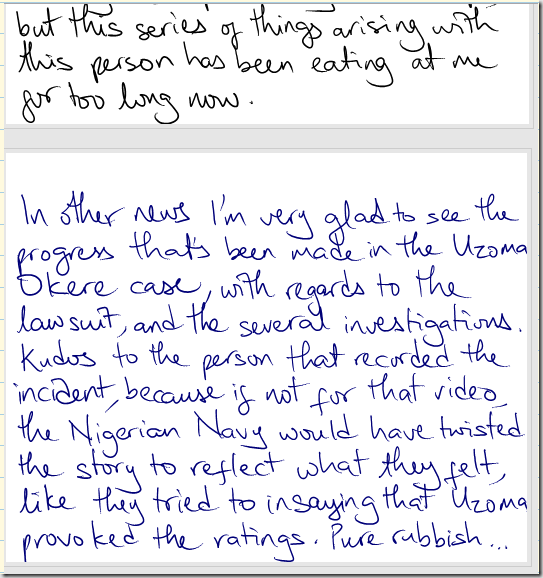 but this series of things arising with
this person has been eating at me
for too long now.
In other news I'm very glad to see the
progress that's been made in the Uzoma
Okere case, with regards to the
lawsuit, and the several investigations.
Kudos to the person that recorded the
incident, because if not for that video,
the Nigerian Navy would have twisted
the story to reflect what they felt,
like they tried to in saying that Uzoma
provoked the ratings. Pure rubbish...